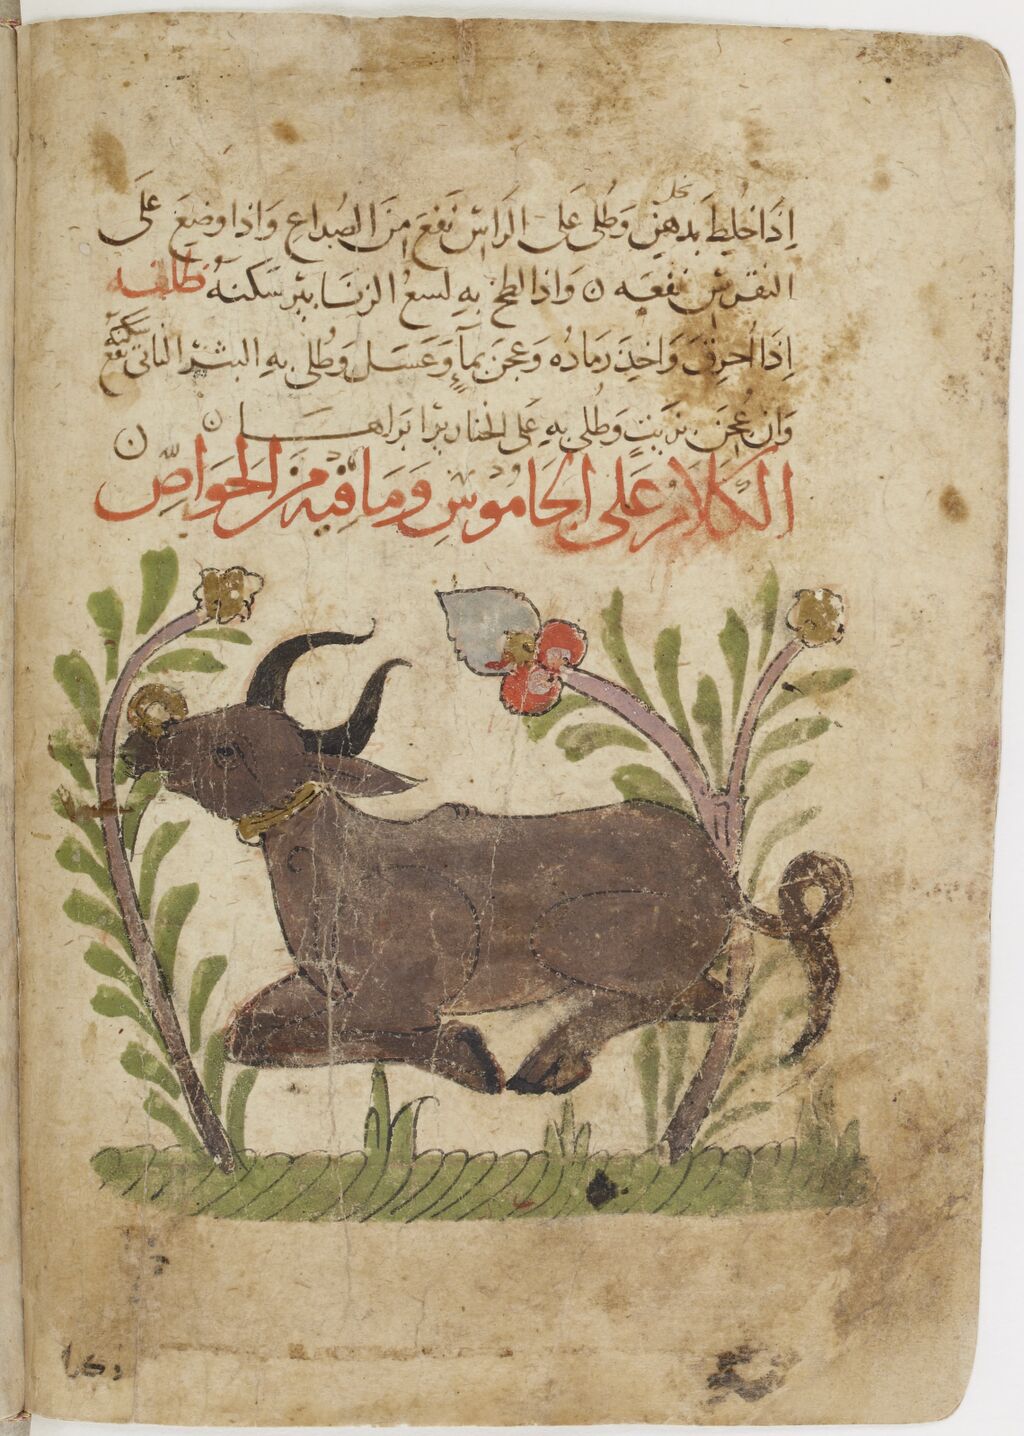 اِذَا خُلِطَ بدهنِ خل وَطُلى عَلى الرَاسْ نَفعَ مِنَ الصُداعِ وَاذا وضِعَ عَلَى
النقرسْ نفعَه ن وَاذا لطخ بهِ لسعُ الزنَابيْر سَكنهُ ظلفه
اِذَا اُحرِقَ وَاخِذَ رمَادُه وَعجنَ بمآءٍ وَعَسَل وَطُلى بهِ البثرُ الناتى سَكَنَه نفع
وَان عُجِنَ بزيتٍ وَطُلى بهِ عَلى الخنازيْر ابرَاهـا ن ن
الكَلَامُ عَلى الجَاموُسِ وَمَا فيهِ مِنَ الخَواصِّ